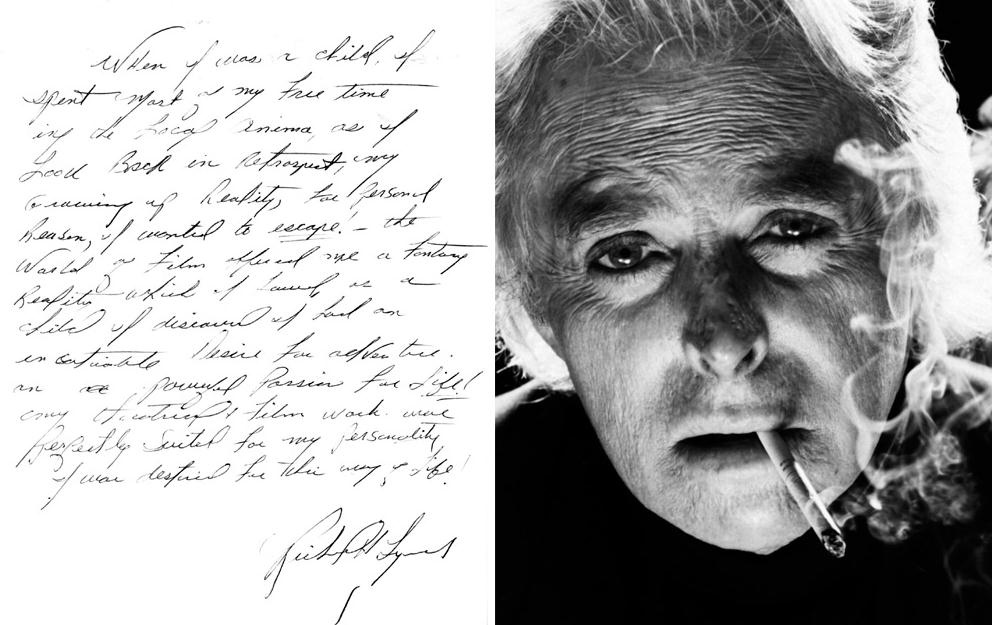 When I was a child, I
spent most of my free time
in the local cinema, as I
look Back in Retrospect, my
craving of Reality, for Personal
Reason, I wanted to escape! - the
World of Film offered me a fantasy
Reality which I loved, as a
child I discovered I had an
insatiable Desire for adventure.
an powerful Passion for Life!
my theatrical & Film work were
perfectly suited for my personality
I was destined for this way of Life!
Richard Lynch